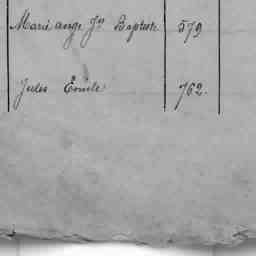 Marie ange Jn Baptiste 579
Jules Émile 762.